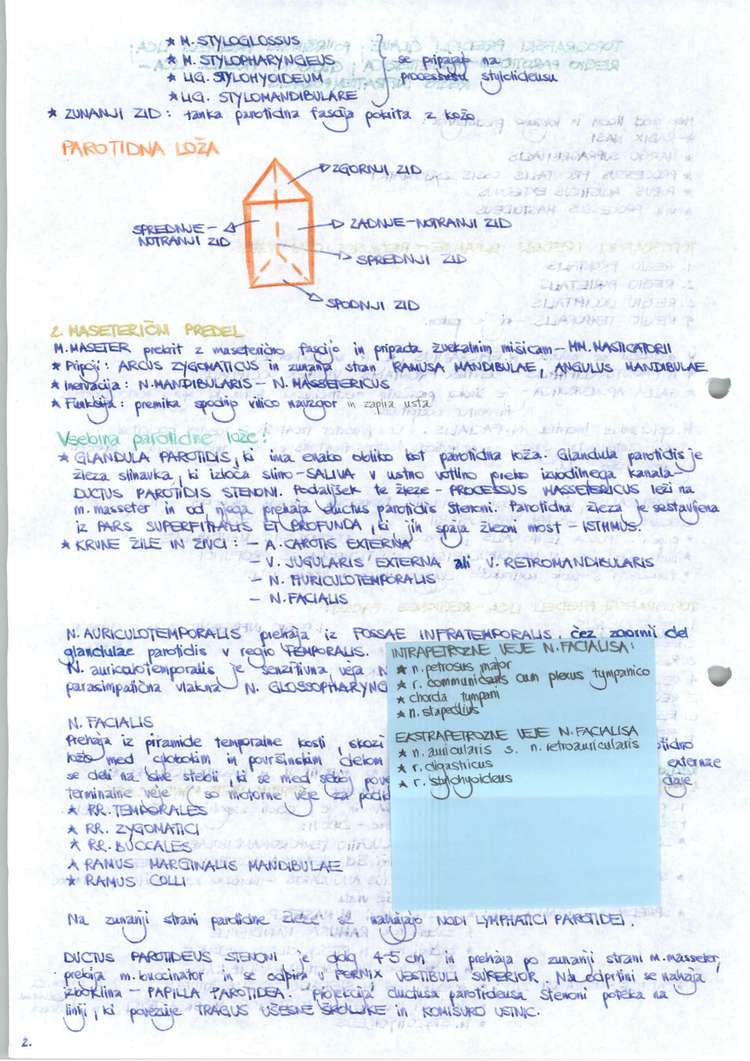 * M. STYLOGLOSSUS
* M. STYLOPHARYNGEUS
* LIG. STYLOHYOIDEUM
* LIG. STYLOMANDIBULARE
se pripajajo na
processusu styloideusu
* ZUNANJI ZID: tanka parotidna fascija pokrita z kožo
PAROTIDNA LOŽA
ZGORNJI ZID
SPREDNJE-NOTRANJI ZID
ZADNJE-NOTRANJI ZID
SPREDNJI ZID
SPODNJI ZID
2. MASETERIČNI PREDEL
M. MASETER prekrit z maseterično fascijo in pripada žvekalnim mišicam - MM. MASTICATORII
* Pripoji: ARCUS ZYGOMATICUS in zunanja stran RAMUSA MANDIBULAE, ANGULUS MANDIBULAE
* Inervacija: N. MANDIBULARIS - N. MASSETERICUS
* Funkcija: premika spodnjo vilico navzgor in zapira usta
Vsebina parotidne lože:
* GLANDULA PAROTIDIS, ki ima enako obliko kot parotidna loža. Glandula parotidis je
žleza slinavka, ki izloča slino - SALIVA v ustno votlino preko izvodilnega kanala -
DUCTUS PAROTIDIS STENONI. Podaljšek te žleze - PROCESSUS MASSETERICUS leži na
m. masseter in od njega prehaja ductus parotidis Stenoni. Parotidna žleza je sestavljena
iz PARS SUPERFITIALIS ET PROFUNDA, ki jih spaja žlezni most - ISTHMUS.
* KRVNE ŽILE IN ŽIVCI: - A. CAROTIS EXTERNA
- V. JUGULARIS EXTERNA ali V. RETROMANDIBULARIS
- N. AURICULOTEMPORALIS
- N. FACIALIS
N. AURICULOTEMPORALIS prehaja iz FOSSAE INFRATEMPORALIS, čez zgornji del
glandulae parotidis v regio TEMPORALIS.
N. auriculotemporalis je senzitivna veja N
parasimpatična vlakna N. GLOSSOPHARYNG
INTRAPETROZNE VEJE N. FACIALISA:
* n. petrosus major
* r. communicans cum plexus tympanico
* chorda tympani
* n. stapedius
EKSTRAPETROZNE VEJE N. FACIALISA
* n. auricularis s. n. retroauricularis
* r. digastricus
* r. stylohyoideus
N. FACIALIS
Prehaja iz piramide temporalne kosti, skozi
ložo med globokim in površinskim delom
externae
se deli na dve stebli, ki se med seboj pove
daje
terminalne veje (so motorne veje za podk
* RR. TEMPORALES
* RR. ZYGOMATICI
* RR. BUCCALES
* RAMUS MARGINALIS MANDIBULAE
* RAMUS COLLI
Na zunanji strani parotidne žleze se nahajajo NODI LYMPHATICI PAROTIDEI.
DUCTUS PAROTIDEUS STENONI je dolg 4-5 cm in prehaja po zunanji strani m. masseter,
prebija m. buccinator in se odpira v FORNIX VESTIBULI SUPERIOR. Na odprtini se nahaja
izboklina - PAPILLA PAROTIDEA. Projekcija ductusa parotideusa Stenoni poteka na
liniji, ki povezuje TRAGUS UŠESNE ŠKOLJKE in KOMISURO USTNIC.
2.